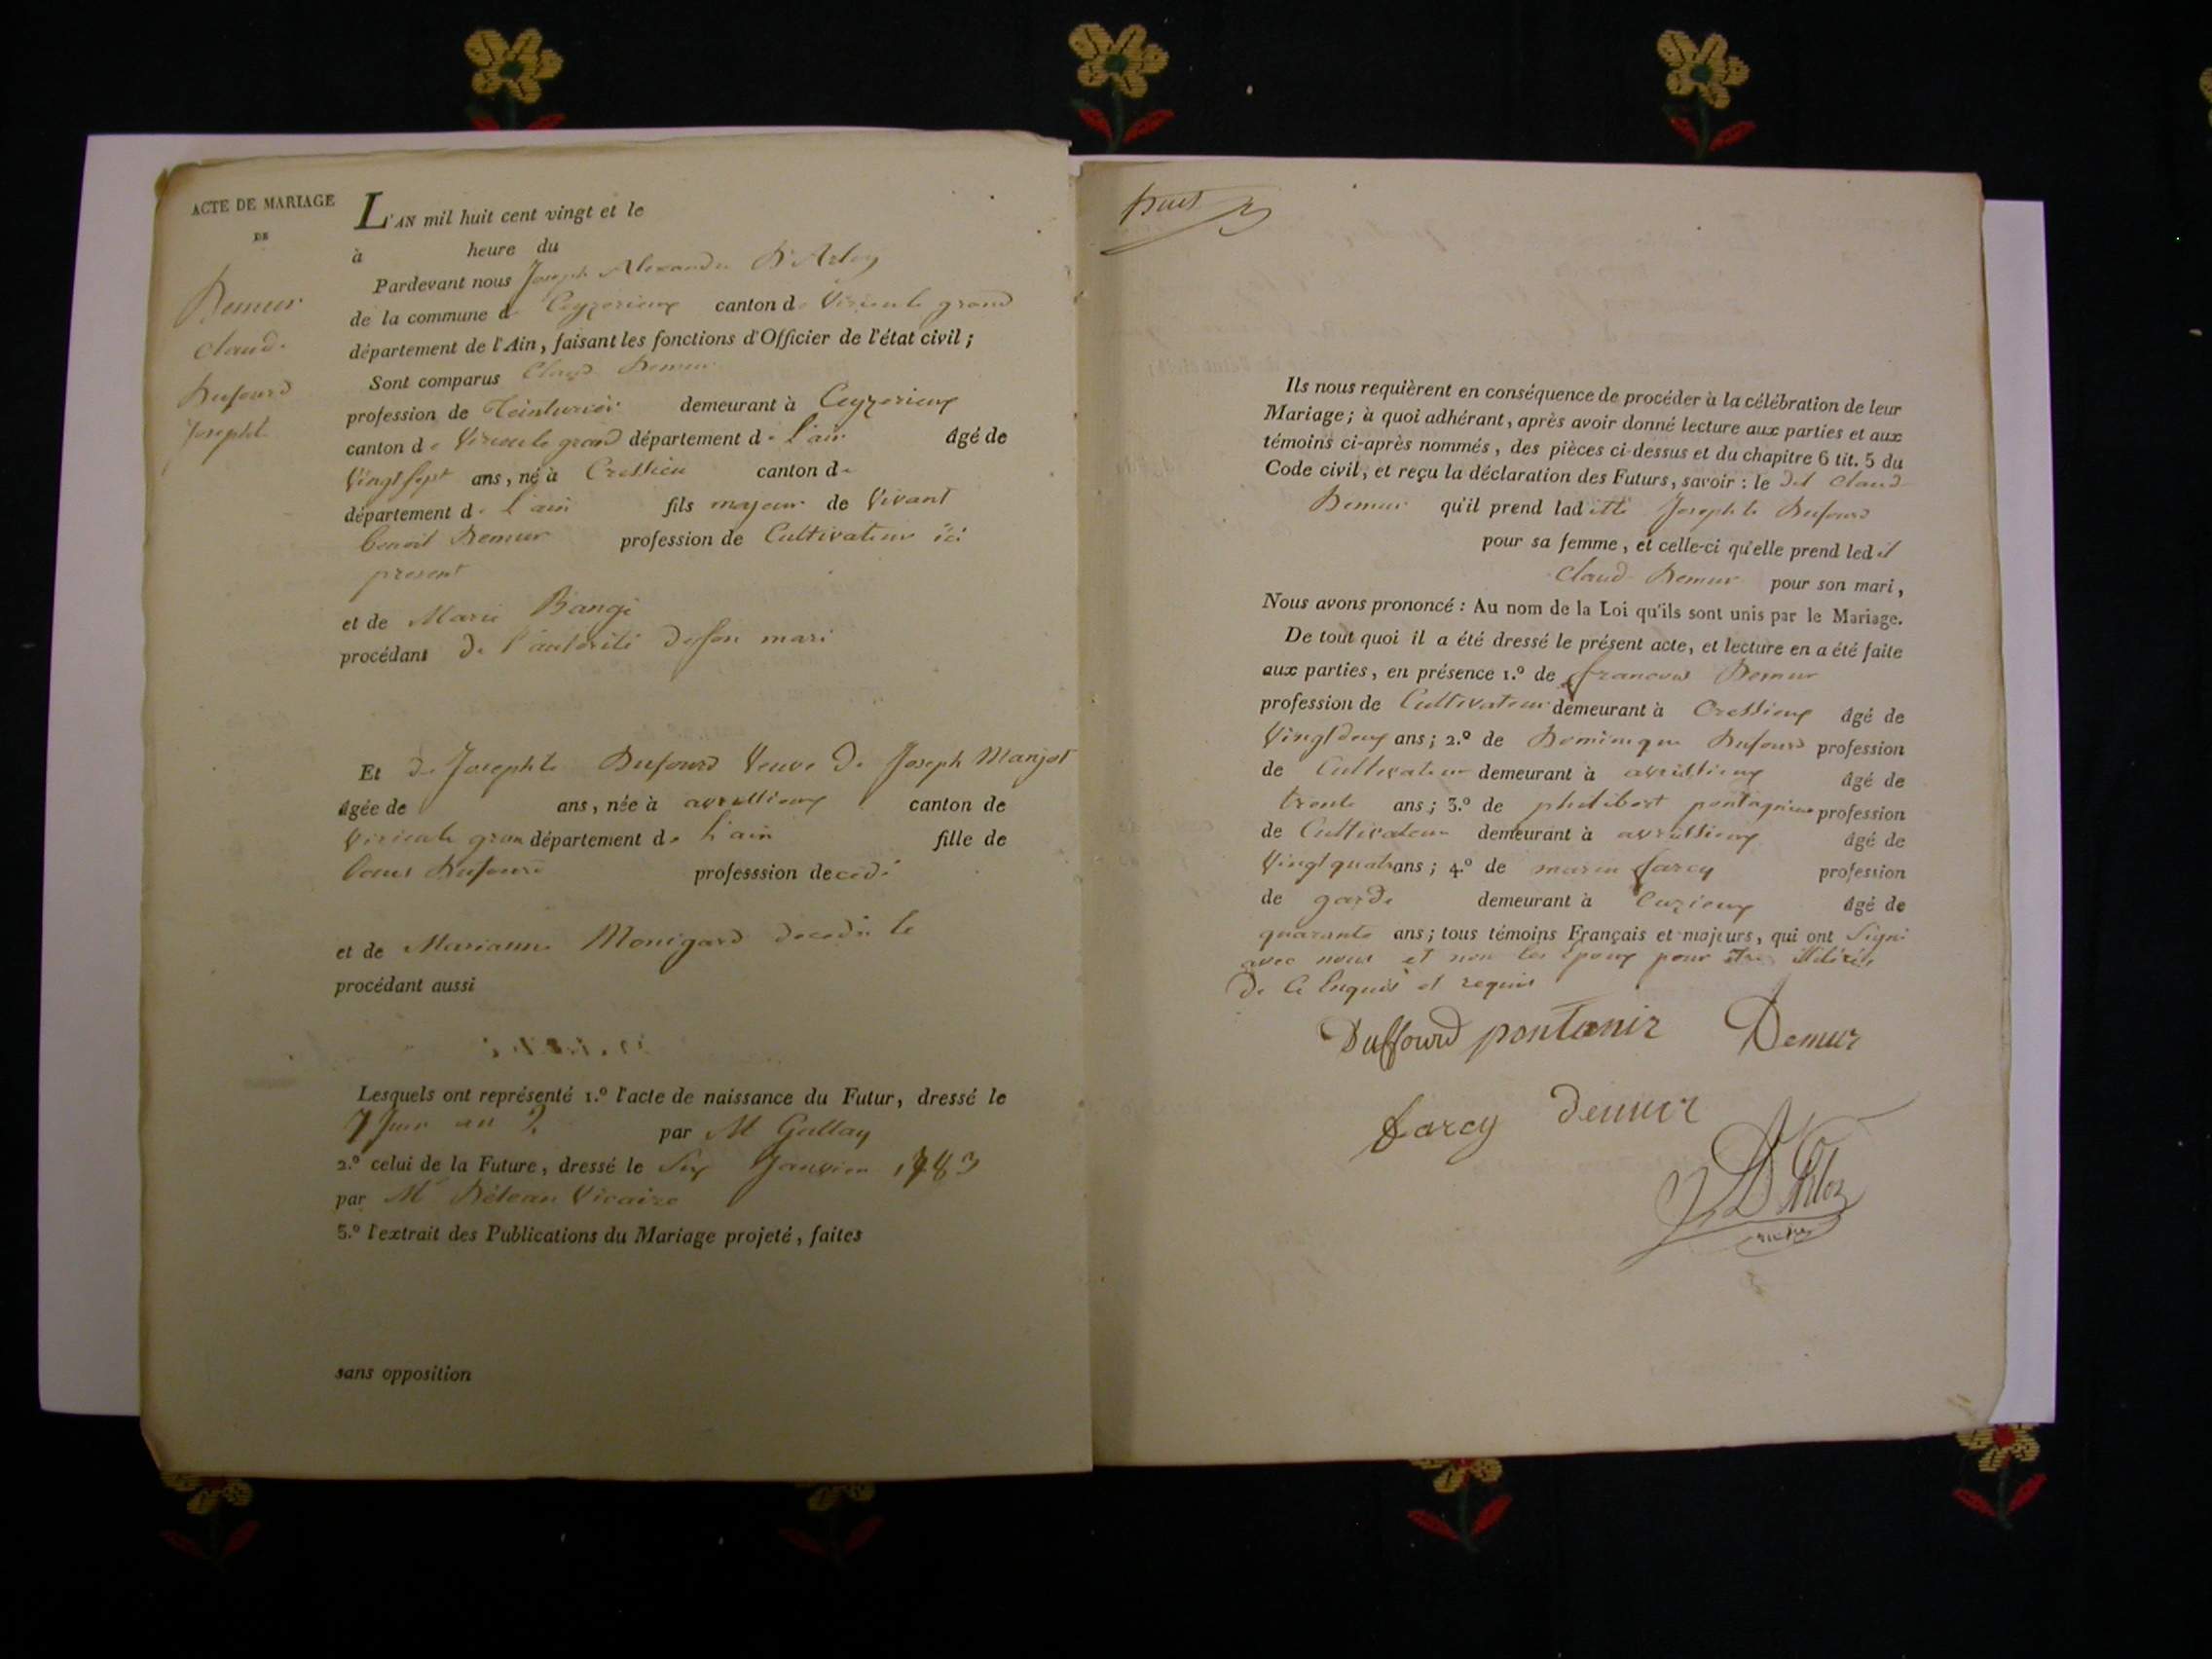 ACTE DE MARIAGE
DE
Demur
Claude
Dufourd
Josephte
L'AN mil huit cent vingt et le
à heure du
Pardevant nous Joseph Alexandre D'Arloz
de la commune de Ceyzerieux canton de Virieu le grand
département de l'Ain, faisant les fonctions d'Officier de l'état civil;
Sont comparus Claude Demur
profession de Teinturier demeurant à Ceyzerieux
canton de Virieu le grand département de l'ain âgé de
Vingt sept ans, né à Cressieu canton de
département de l'ain fils majeur de Vivant
benoit Demur profession de Cultivateur ici
present
et de Marie Bangé
procédant de l'autorité de son mari
Et de Josephte Dufourd Veuve de Joseph Manjot
âgée de ans, née à avrissieux canton de
Virieu le gran département de l'ain fille de
Louis Dufourd professsion de cedé
et de Marianne Monigard decedée le
procédant aussi
Lesquels ont représenté 1.º l'acte de naissance du Futur, dressé le
7 Juin an 2 par Mr Gallay
2.º celui de la Future, dressé le Six Janvier 1783
par Mr Vicaire
3.º l'extrait des Publications du Mariage projeté, faites
sans opposition
huit
Ils nous requièrent en conséquence de procéder à la célébration de leur
Mariage; à quoi adhérant, après avoir donné lecture aux parties et aux
témoins ci-après nommés, des pièces ci-dessus et du chapitre 6 tit. 5 du
Code civil, et reçu la déclaration des Futurs, savoir: le dit Claude
Demur qu'il prend laditte Josephte Dufourd
pour sa femme, et celle-ci qu'elle prend ledit
Claude Demur pour son mari,
Nous avons prononcé: Au nom de la Loi qu'ils sont unis par le Mariage.
De tout quoi il a été dressé le présent acte, et lecture en a été faite
aux parties, en présence 1.º de francois Demur
profession de Cultivateur demeurant à Cressieux âgé de
Vingt deux ans; 2.º de Dominique Dufourd profession
de Cultivateur demeurant à avrissieux âgé de
trente ans; 3.º de philibert pontagnier profession
de Cultivateur demeurant à avrissieux âgé de
Vingt quatre ans; 4.º de marin farcy profession
de garde demeurant à Cuzieux âgé de
quarante ans; tous témoins Français et majeurs, qui ont Signé
avec nous et non les Epoux pour etre illiterés
de ce Enquis et requis
Duffourd pontanir Demur
farcy demur
J D'Arloz
maire